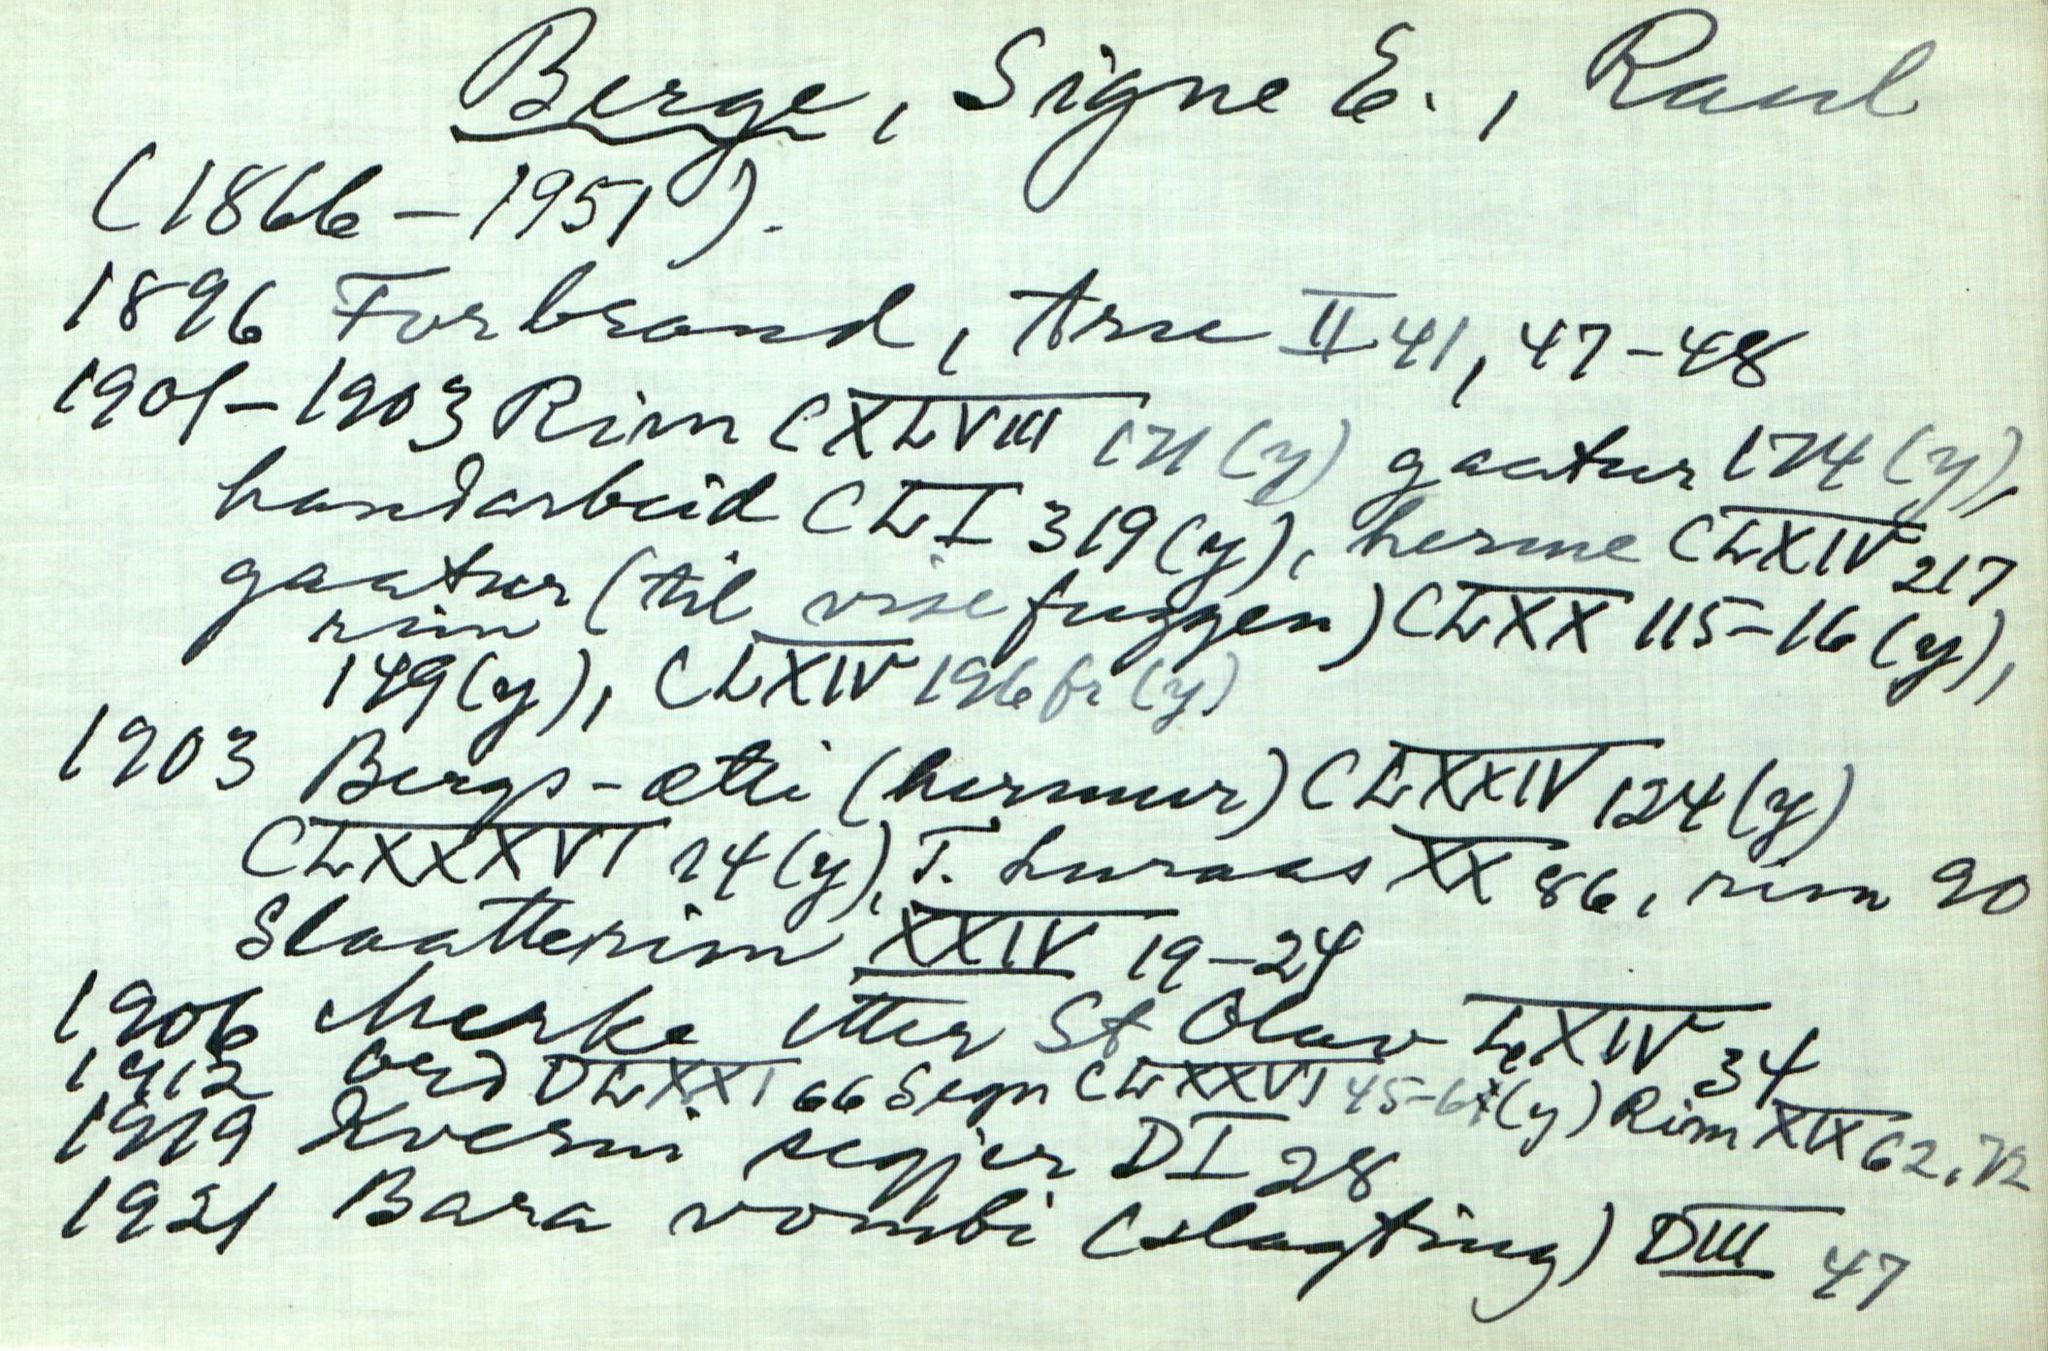 Berge, Signe E., Raul
(1866 – 1951).
1896 Forbrand, Arne II 41, 47–48
1901–1903 Rim CXLVIII 171 (y) gaatur 174 (y),
handarbeid CLI 319 (y), herme CLXIV 217
gaatur (til vise fuggen) CLXX 115–16 (y),
rim
149 (y), CLXIV 196 fr (y)
1903 Bergs-ætti (hermur) CLXXIV 124 (y)
CLXXXVI 14 (y), T. Luraas XX 86, rim 90
Slaatterim XXIV 19–24
1906 Merke itter St Olav LXIV 34
1912 ord DLXXI 66 Segn CLXXVI 45–6 (y) Rim XIX 62, 72
1919 Kverni segjer DI 28
1921 Bara vombi (slagting) DIII 47